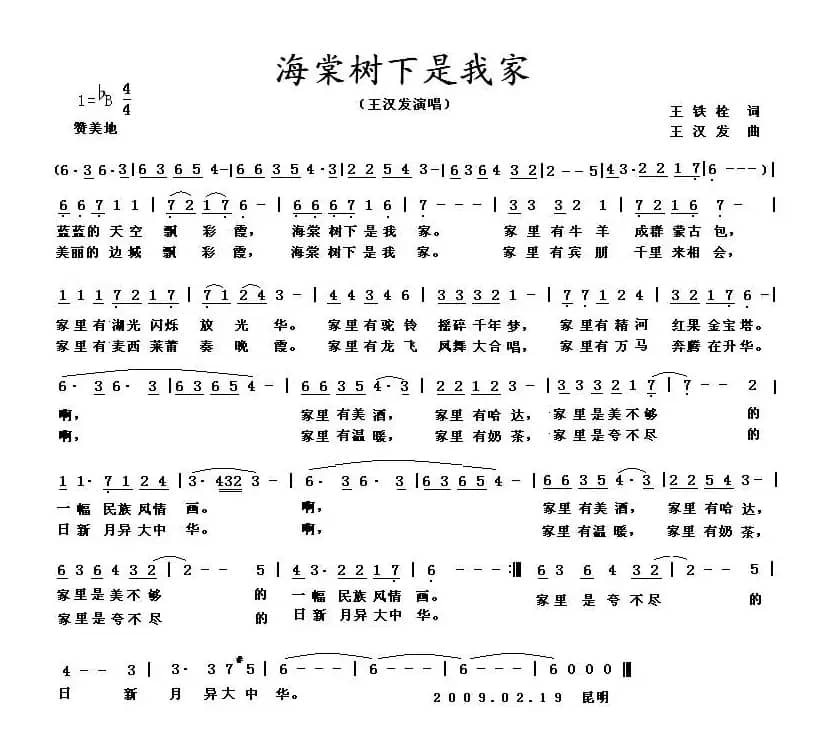 海棠树下是我家
1=♭B 4/4
（王汉发演唱）
赞美地
王 铁 栓 词
王 汉 发 曲
(6·3 6·3|6 3 6 5 4-|6 6 3 5 4 3·3|2 2 5 4 3-|6 3 6 4 3 2|2--5|4 3·2 2 1 7|6---)|
6 6 7 1 1 | 7 2 1 7 6 - | 6 6 6 7 1 6 | 7--- | 3 3 3 2 1 | 7 2 1 6 7 - |
蓝蓝的 天空 飘 彩 霞， 海棠 树下 是 我 家。 家 里 有 牛 羊 成群 蒙古 包，
美丽的 边城 飘 彩 霞， 海棠 树下 是 我 家。 家 里 有 宾 朋 千里 来相 会，
1 1 1 7 2 1 7 | 7 1 2 4 3 - | 4 4 3 4 6 | 3 3 3 2 1 - | 7 7 1 2 4 | 3 2 1 7 6 - |
家里 有 湖光 闪烁 放 光 华。 家里 有 驼 铃 摇碎 千年 梦， 家里 有 精 河 红果 金宝 塔。
家里 有 麦西 莱甫 奏 晚 霞。 家里 有 龙 飞 凤舞 大合 唱， 家里 有 万 马 奔腾 在升 华。
6· 3 6· 3 | 6 3 6 5 4 - | 6 6 3 5 4·3 | 2 2 1 2 3 - | 3 3 3 2 1 7 | 7-- 2 |
啊， 家里 有美 酒， 家里 有哈 达， 家里 是美 不够 的
啊， 家里 有温 暖， 家里 有奶 茶， 家里 是夸 不尽 的
1 1· 7 1 2 4 | 3·4 3 2 3 - | 6· 3 6· 3 | 6 3 6 5 4 - | 6 6 3 5 4·3 | 2 2 5 4 3 - |
一幅 民族 风情 画。 啊， 家里 有美 酒， 家里 有哈 达，
日新 月异 大中 华。 啊， 家里 有温 暖， 家里 有奶 茶，
6 3 6 4 3 2 | 2-- 5 | 4 3· 2 2 1 7 | 6 -- :‖ 6 3 6 4 3 2 | 2 -- 5 |
家里 是美 不够 的 一幅 民族 风情 画。 家里 是 夸 不尽 的
家里 是夸 不尽 的 日新 月异 大中 华。
4 -- 3 | 3· 3 7 #5 | 6--- | 6--- | 6--- | 6 0 0 0 ‖
日 新 月 异大 中 华。
2009.02.19 昆明